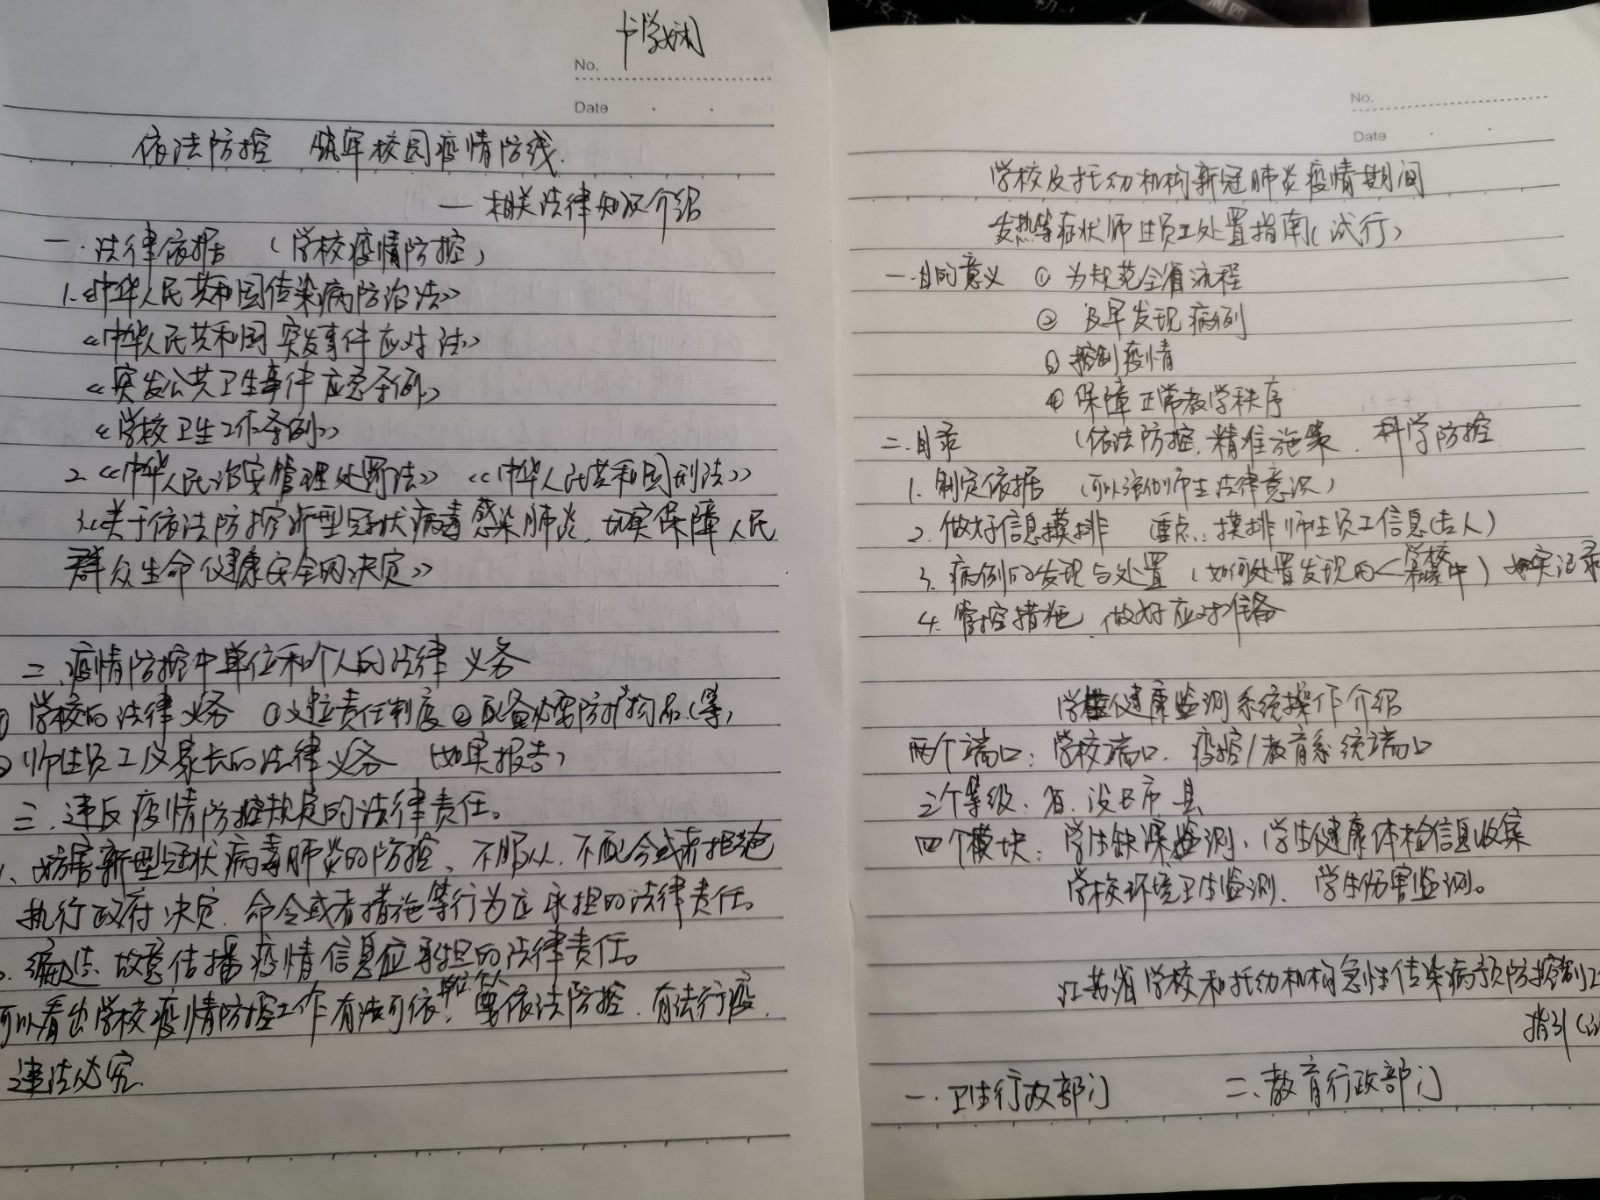 No.
Date
依法防控 筑牢校园疫情防线.
— 相关法律知识介绍
一. 法律依据 (学校疫情防控)
1.《中华人民共和国传染病防治法》
《中华人民共和国突发事件应对法》
《突发公共卫生事件应急条例》
《学校卫生工作条例》
2.《中华人民治安管理处罚法》《中华人民共和国刑法》
3.《关于依法防控新型冠状病毒感染肺炎.切实保障人民
群众生命健康安全的决定》
二.疫情防控中单位和个人的法律义务
学校的法律义务 ①建立责任制度 ②配备必要防护物品(等)
师生员工及家长的法律义务 (如实报告)
三.违反疫情防控规定的法律责任。
1、妨害新型冠状病毒肺炎的防控、不服从.不配合或者拒绝
执行政府决定.命令或者措施等行为应承担的法律责任。
编造.故意传播疫情信息应承担的法律责任。
可以看出学校疫情防控工作有法可依,要依法防控.有法行疫.
违法必究.
No.
Date
学校及托幼机构新冠肺炎疫情期间
发热等症状师生员工处置指南(试行)
一.目的意义 ① 为规范全省流程
② 及早发现病例
③ 控制疫情
④ 保障正常教学秩序
二.目录 (依法防控.精准施策.科学防控
1. 制定依据 (可以强化师生法律意识)
2.做好信息摸排 重点:摸排师生员工信息(去人)
3.病例的发现与处置 (如何处置发现的<学校中) 如实记录
4.管控措施.做好应对准备
学生健康监测系统操作介绍
两个端口:学校端口.疫控/教育系统端口
三个等级:省.设区市.县
四个模块:学生缺课监测、学生健康体检信息收集
学校环境卫生监测、学生伤害监测。
江苏省学校和托幼机构急性传染病预防控制工
指引(试
一.卫生行政部门 二.教育行政部门